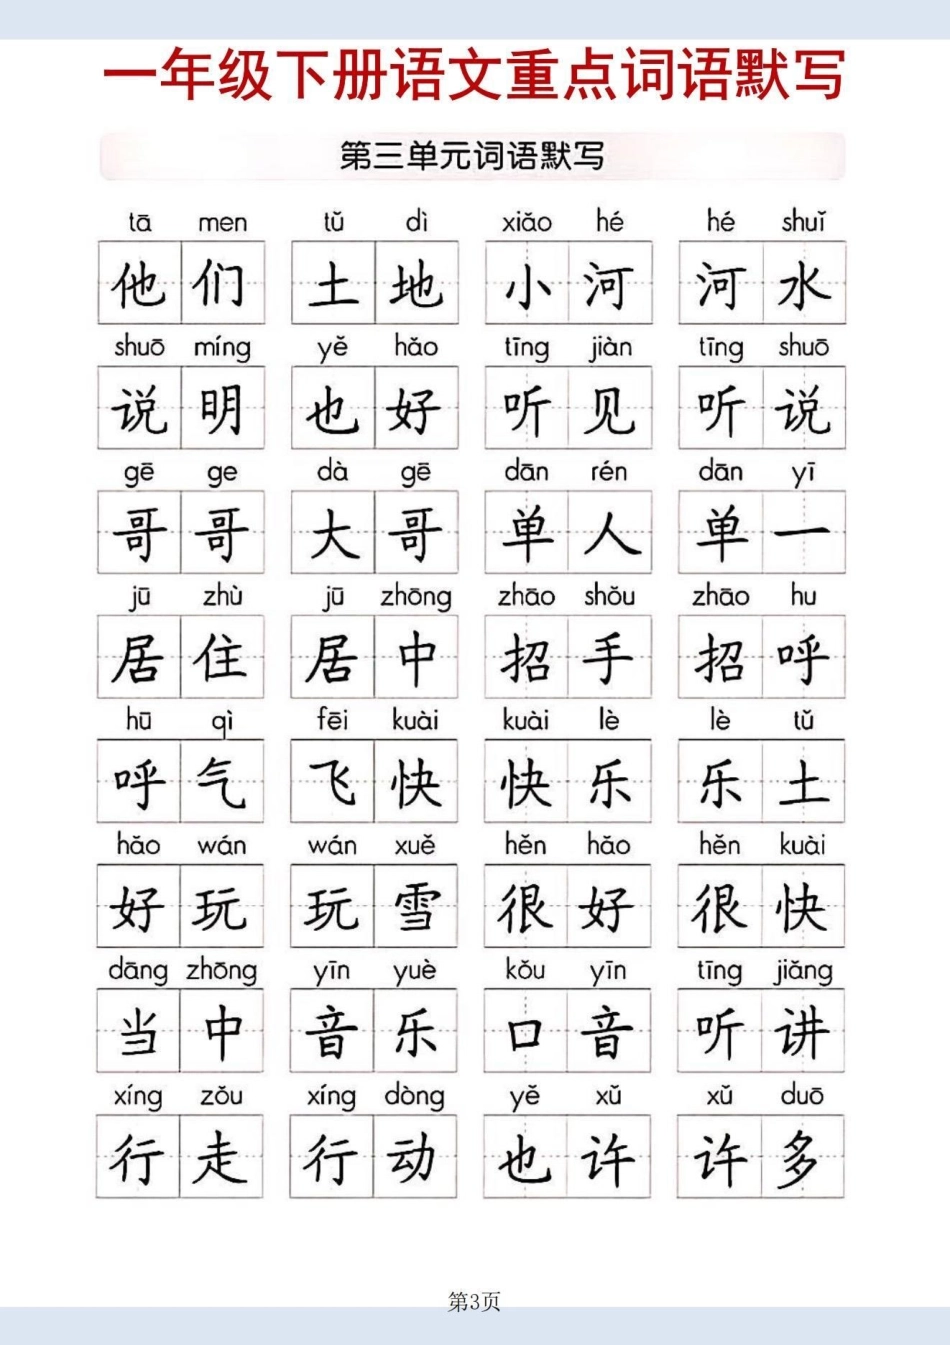 一年级下册语文重点词语默写
第三单元词语默写
tā men tǔ dì xiǎo hé hé shuǐ
他们 土地 小河 河水
shuō míng yě hǎo tīng jiàn tīng shuō
说明 也好 听见 听说
gē ge dà gē dān rén dān yī
哥哥 大哥 单人 单一
jū zhù jū zhōng zhāo shǒu zhāo hu
居住 居中 招手 招呼
hū qì fēi kuài kuài lè lè tǔ
呼气 飞快 快乐 乐土
hǎo wán wán xuě hěn hǎo hěn kuài
好玩 玩雪 很好 很快
dāng zhōng yīn yuè kǒu yīn tīng jiǎng
当中 音乐 口音 听讲
xíng zǒu xíng dòng yě xǔ xǔ duō
行走 行动 也许 许多
第3页